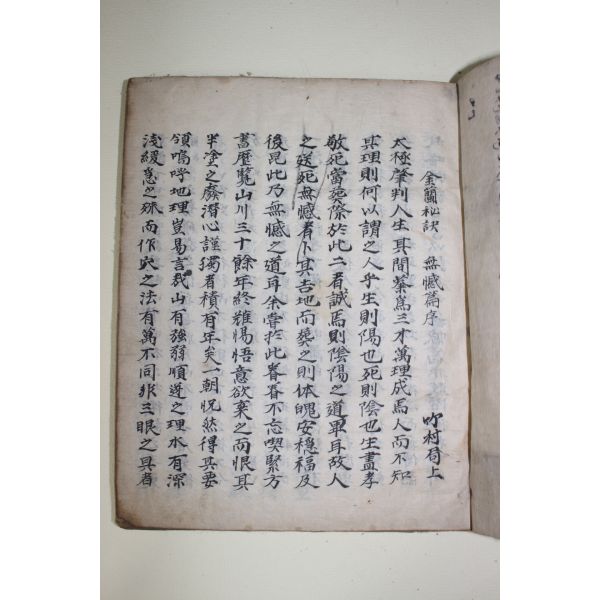 金蘭秘訣　無憾篇序　吹村 上
太極肇判人生其間槩爲三才萬理成焉人而不知
其理則何以謂之人乎生則陽也死則陰也生盡孝
敬死當葬際於此二者誠焉則陰陽之道畢耳故人
之送死無憾者卜其吉地而葬之則体魄安穩福及
後昆此乃無憾之道耳余嘗於此眷眷不忘喫緊方
書歷覽山川三十餘年終難惕悟意欲棄之而恨其
半塗之廢潛心謹獨者積有年矣一朝怳然得其要
領嗚呼地理豈易言哉山有強弱順逆之理水有深
淺緩急之殊而作穴之法有萬不同非三眼之具者